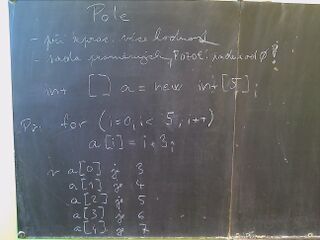 Pole
- při zprac. více hodnot
- sada proměnných, POZOR: řada od 0!
int [] a = new int[5];
Př. for (i=0, i< 5, i++)
a[i] = i+3;
v a[0] je 3
a[1] je 4
a[2] je 5
a[3] je 6
a[4] je 7